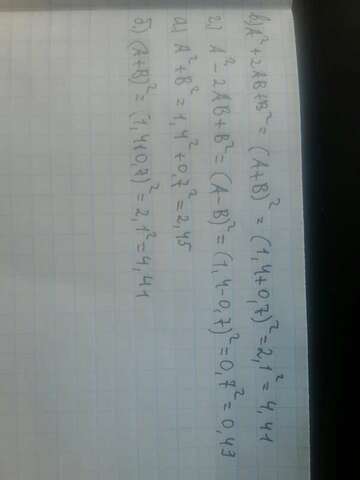 в) A² + 2AB + B² = (A+B)² = (1,4+0,7)² = 2,1² = 4,41
г) A² - 2AB + B² = (A-B)² = (1,4-0,7)² = 0,7² = 0,43
а) A² + B² = 1,4² + 0,7² = 2,45
б) (A+B)² = (1,4+0,7)² = 2,1² = 4,41